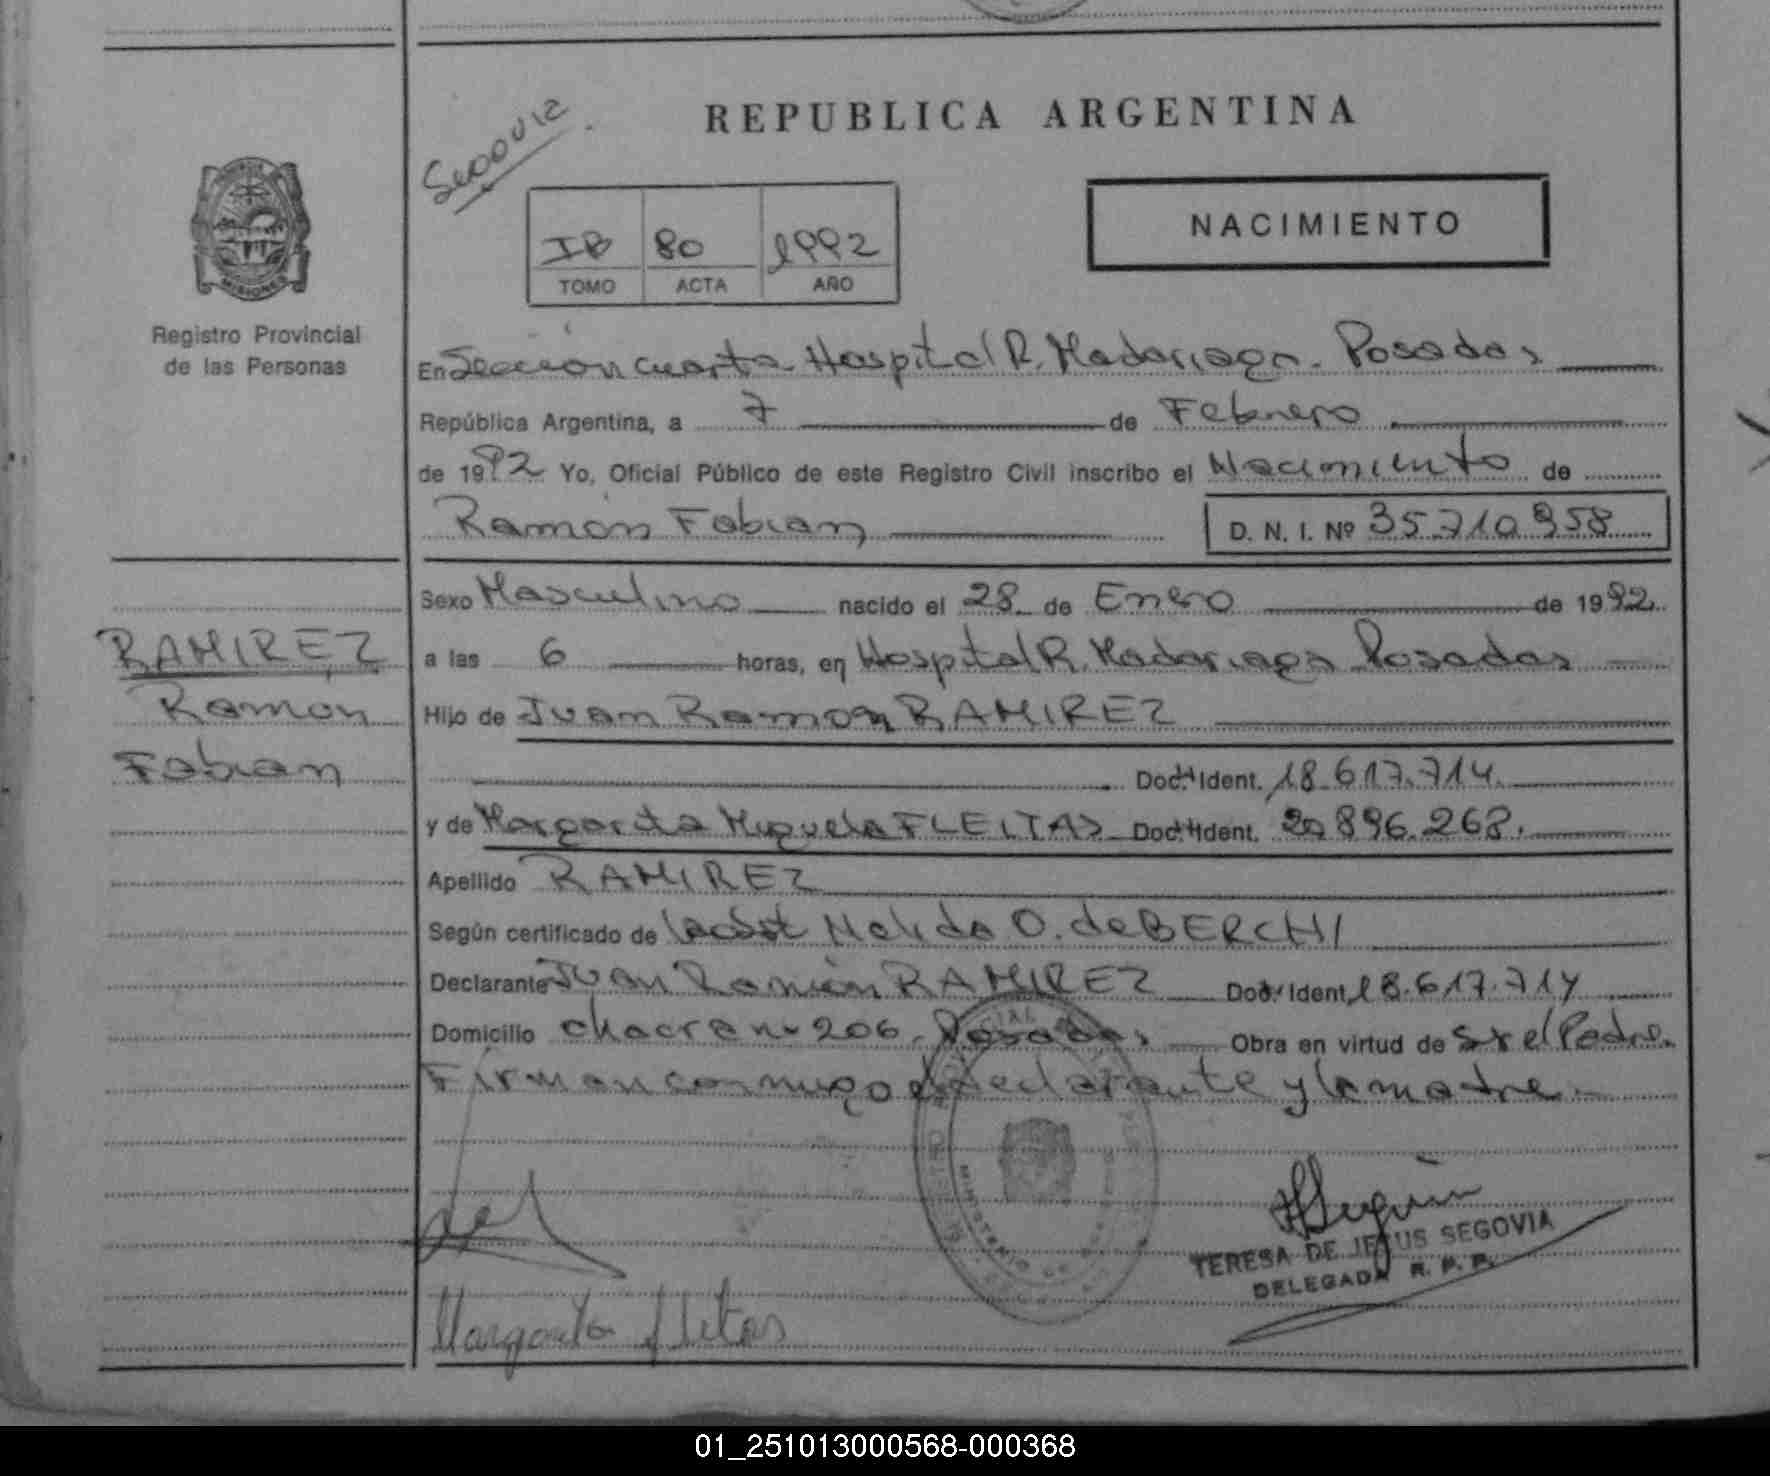 REPUBLICA ARGENTINA
NACIMIENTO
IB 80 1992
TOMO ACTA AÑO
MISIONES
Registro Provincial
de las Personas
En Sección cuarta Hospital R. Madariaga. Posadas
República Argentina, a 7 de Febrero
de 1992 Yo, Oficial Público de este Registro Civil inscribo el Nacimiento de
Ramón Fabian D. N. I. Nº 35.710.958
Sexo Masculino nacido el 28 de Enero de 1992
RAMIREZ
Ramón
Fabian
a las 6 horas, en Hospital R. Madariaga Posadas
Hijo de Juan Ramon RAMIREZ
Doc. Ident. 18.617.714.
y de Margarita Miguela FLEITAS Doc. Ident. 20.896.268.
Apellido RAMIREZ
Según certificado de Nelida O. de BERCHI
Declarante Juan Ramón RAMIREZ Doc. Ident. 18.617.714
Domicilio chacra nº 206. Posadas Obra en virtud de ser el Padre.
Firman conmigo el declarante y la madre.-
TERESA DE JESUS SEGOVIA
DELEGADA R. P. P.
Margarita Fleitas
01_251013000568-000368